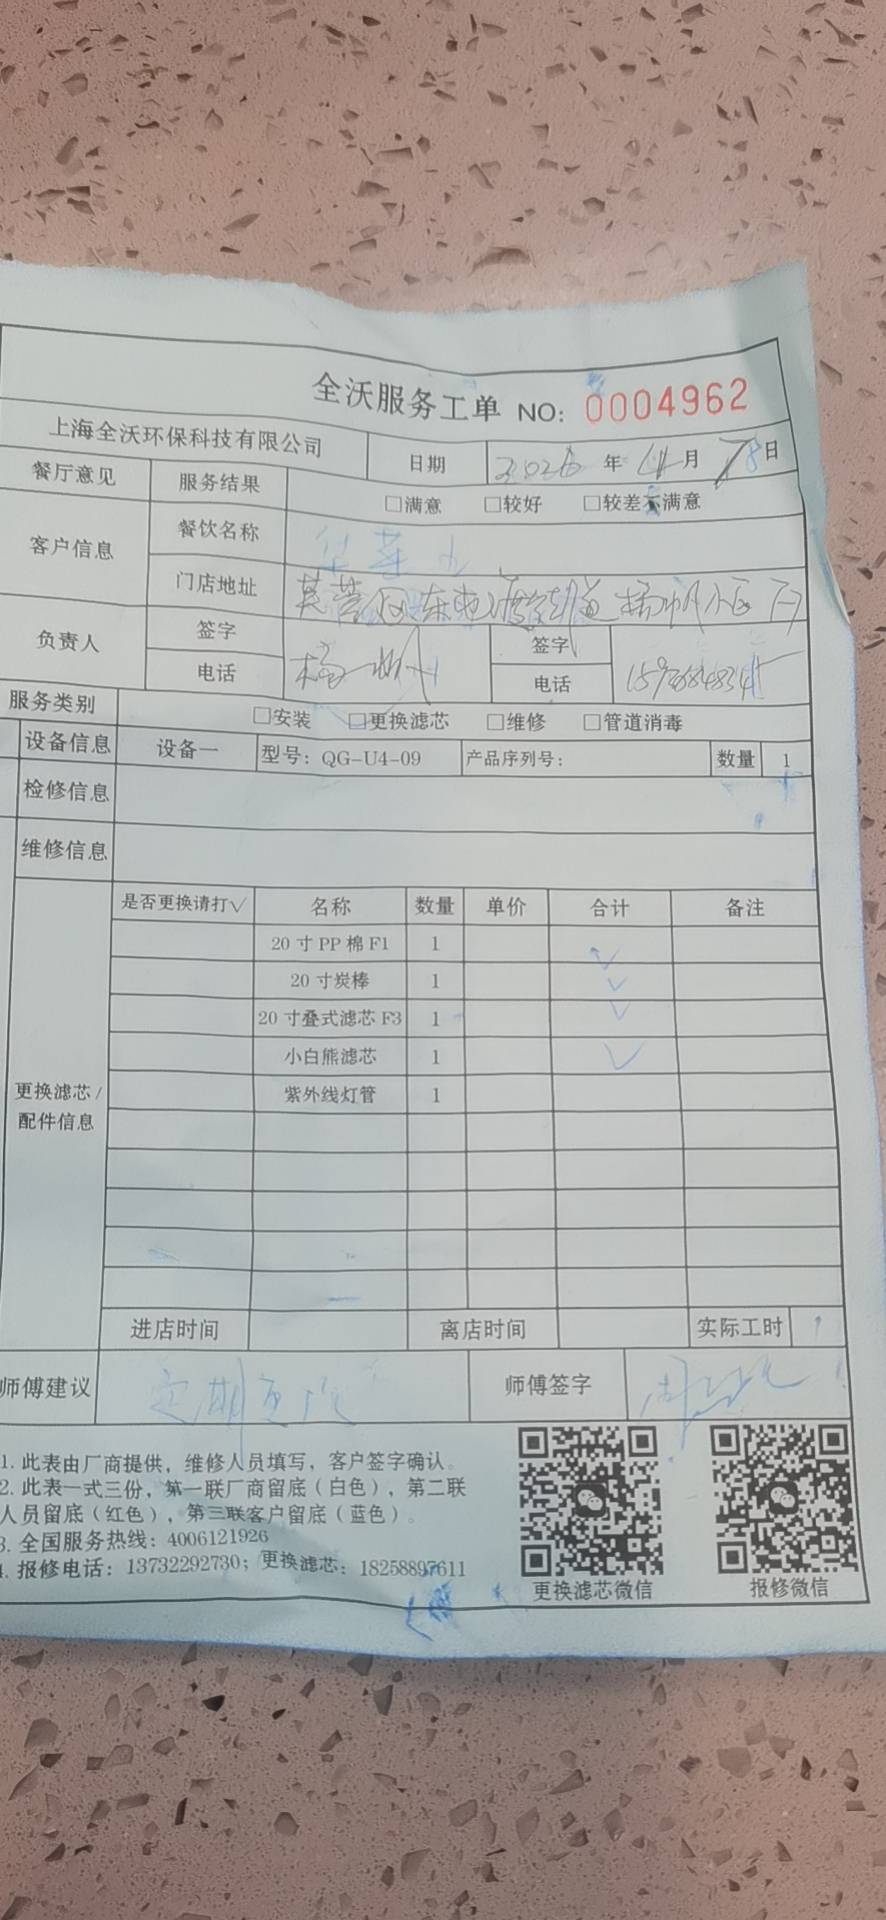 全沃服务工单 NO: 0004962
上海全沃环保科技有限公司 日期 2026 年 月 8 日
餐厅意见 服务结果 □满意 □较好 □较差不满意
客户信息 餐饮名称 华莱士
门店地址
负责人 签字 签字
电话 电话
服务类别 □安装 □更换滤芯 □维修 □管道消毒
设备信息 设备一 型号: QG-U4-09 产品序列号: 数量 1
检修信息
维修信息
更换滤芯/配件信息
是否更换请打√ 名称 数量 单价 合计 备注
20 寸 PP 棉 F1 1 √
20 寸炭棒 1 √
20 寸叠式滤芯 F3 1 √
小白熊滤芯 1 √
紫外线灯管 1
进店时间 离店时间 实际工时
师傅建议 定期更换 师傅签字
1. 此表由厂商提供，维修人员填写，客户签字确认。
2. 此表一式三份，第一联厂商留底（白色），第二联
人员留底（红色），第三联客户留底（蓝色）。
3. 全国服务热线: 4006121926
4. 报修电话: 13732292730; 更换滤芯: 18258897611
更换滤芯微信 报修微信